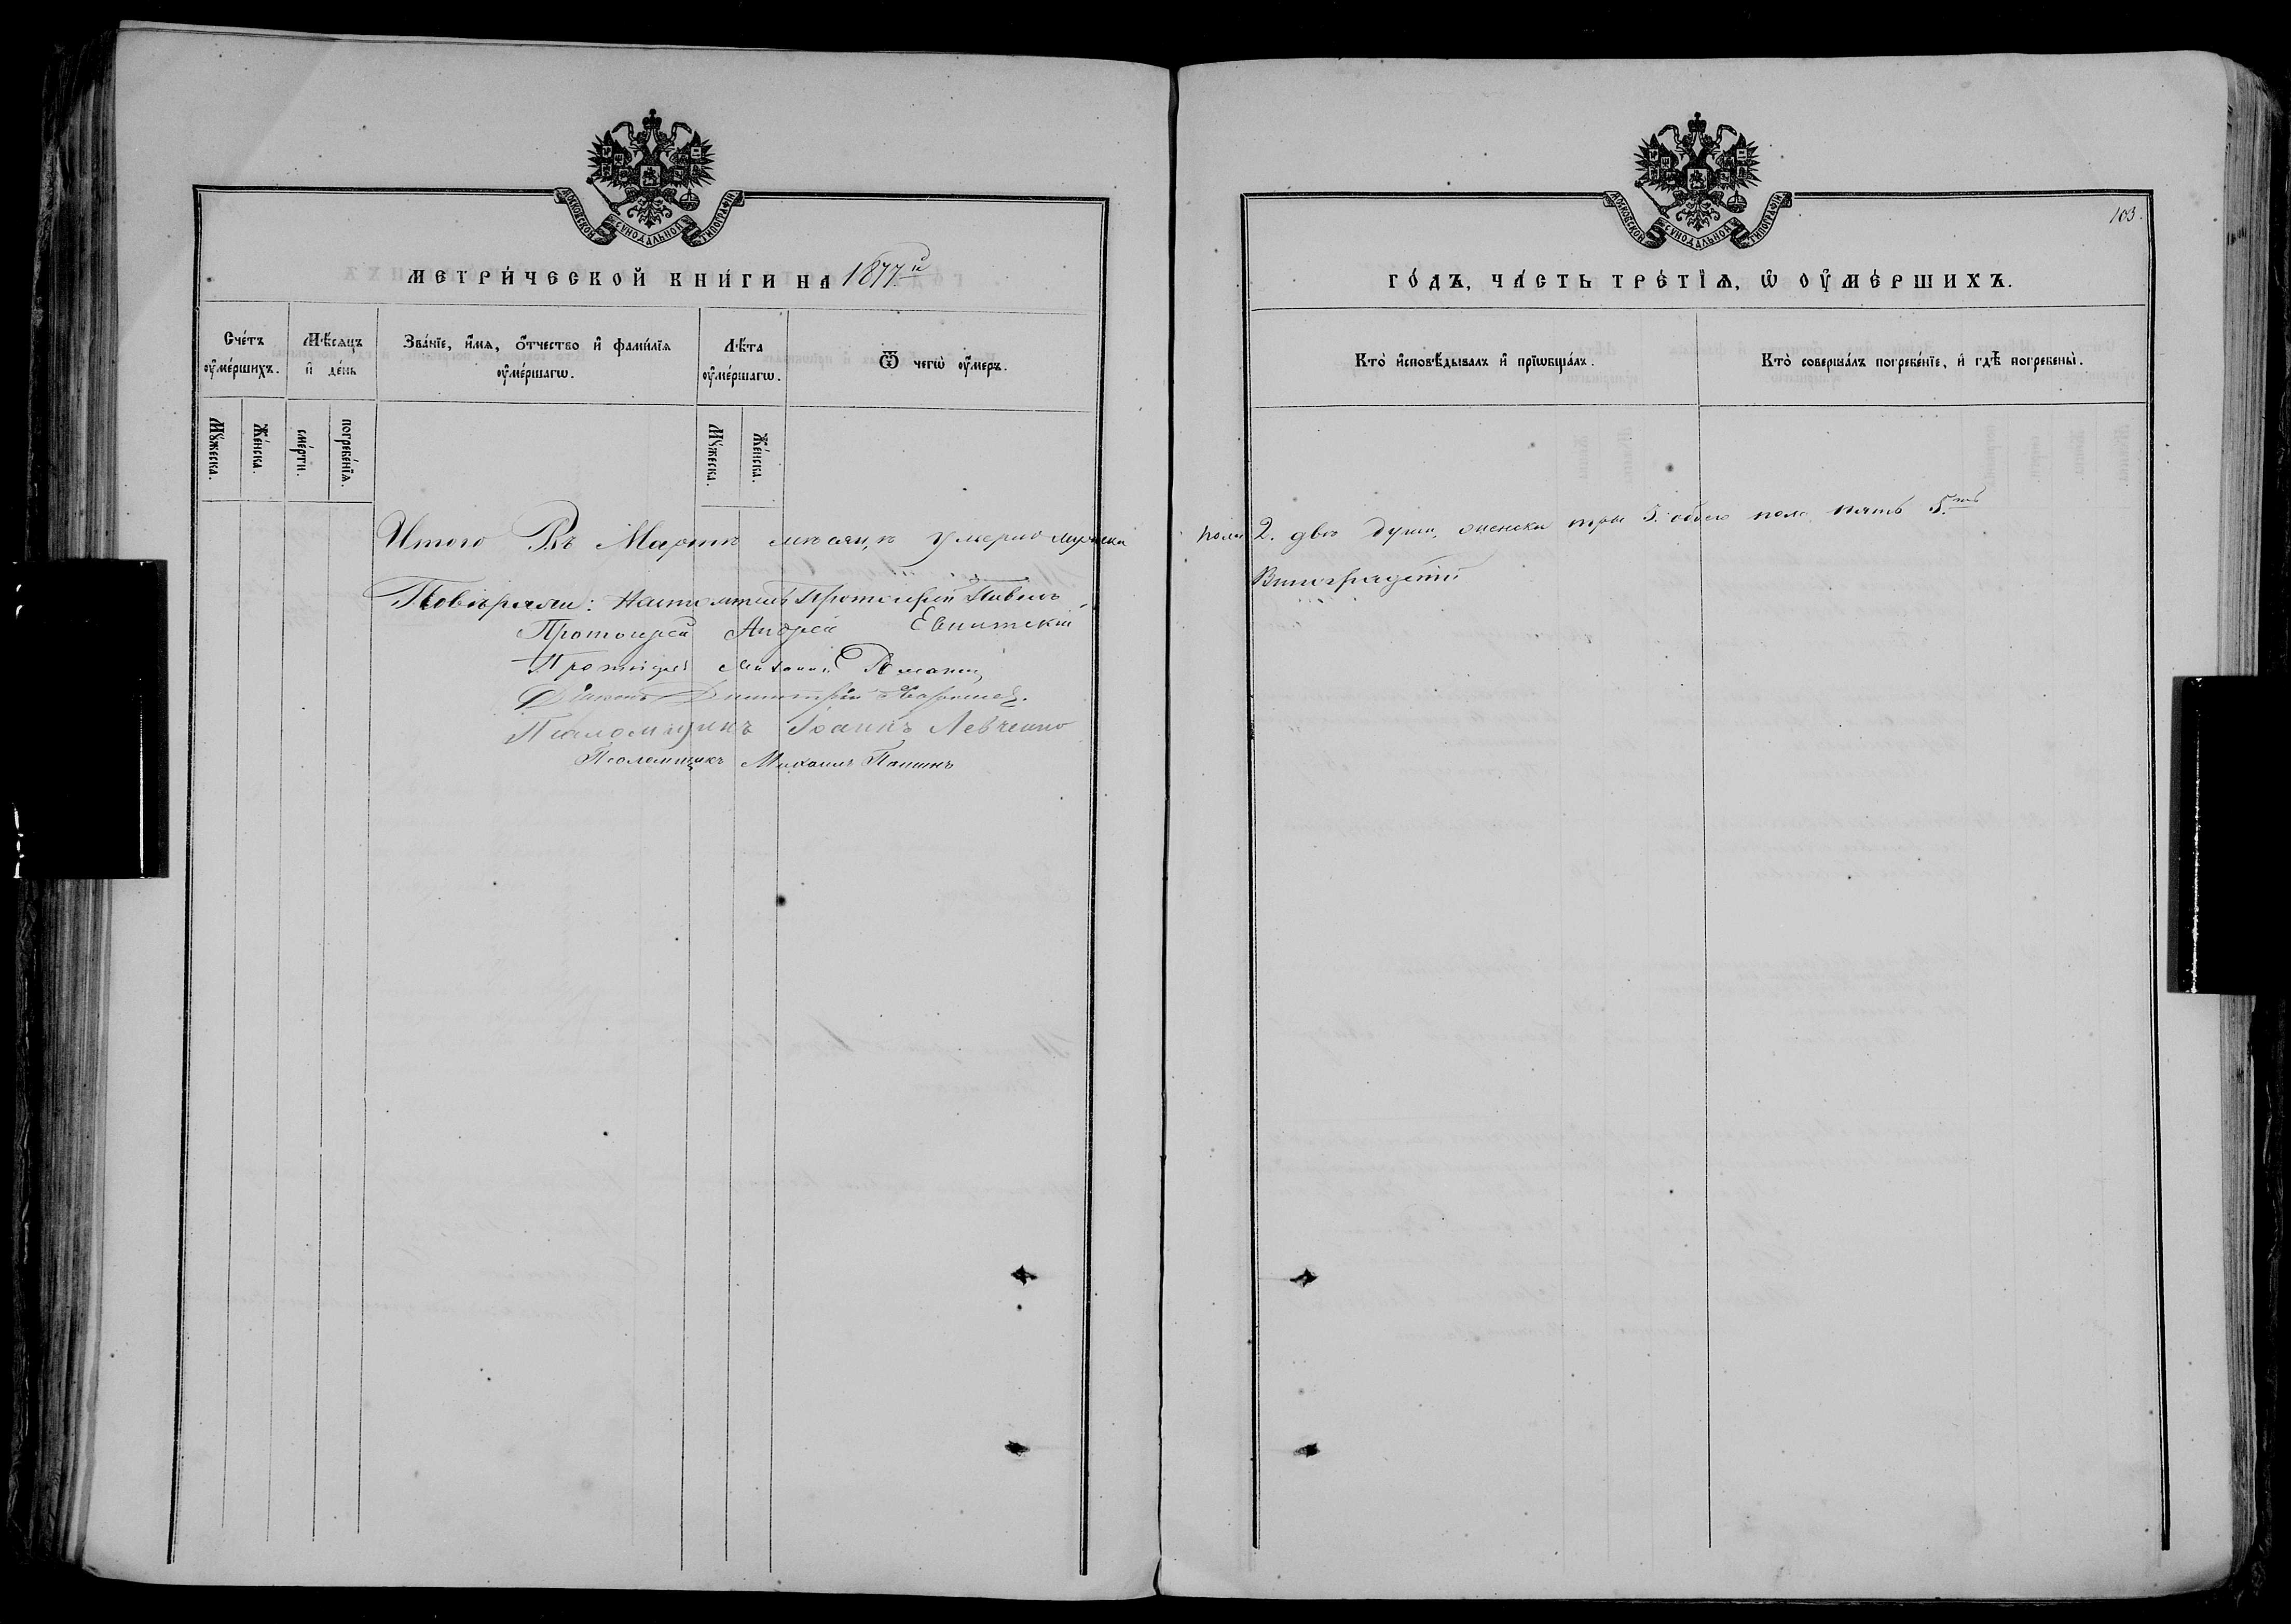 МОСКОВСКОЙ СУНОДАЛЬНОЙ ТИПОГРАФІИ
МЕТРИ́ЧЕСКОЙ КНИ́ГИ НА 1877й
Сче́тъ ᲂу҆ме́ршихъ.
Мѣ́сѧцъ и҆ де́нь
Зва́нїе, и҆́мѧ, ѻ҆́тчество и҆ фами́лїѧ ᲂу҆ме́ршагѡ.
Лѣ́та ᲂу҆ме́ршагѡ.
Ѿ чегѡ̀ ᲂу҆́меръ.
Мꙋ́жеска.
Же́нска.
сме́рти.
погребе́нїѧ.
Мꙋ́жеска.
Же́нска.
Итого Въ Мартѣ мѣсяцѣ умерло мужеска
Повѣряли: Настоятель Протоіерей Павелъ
Протоіерей Андрей
Протоіерей Михаилъ Романи
Діаконъ Димитрій
Псаломщикъ Іоаннъ Левченко
Псаломщикъ Михаилъ Панинъ
МОСКОВСКОЙ СУНОДАЛЬНОЙ ТИПОГРАФІИ
103.
ГО́ДЪ, ЧА́СТЬ ТРЕ́ТЇѦ, Ѡ҆ ᲂУ҆МЕ́РШИХЪ.
Кто̀ и҆сповѣ́дывалъ и҆ прїѡбща́лъ.
Кто̀ соверша́лъ погребе́нїе, и҆ гдѣ̀ погребены̀.
пола 2. двѣ души, женска три 3. обоего пола пять 5.ть
Виноградовъ